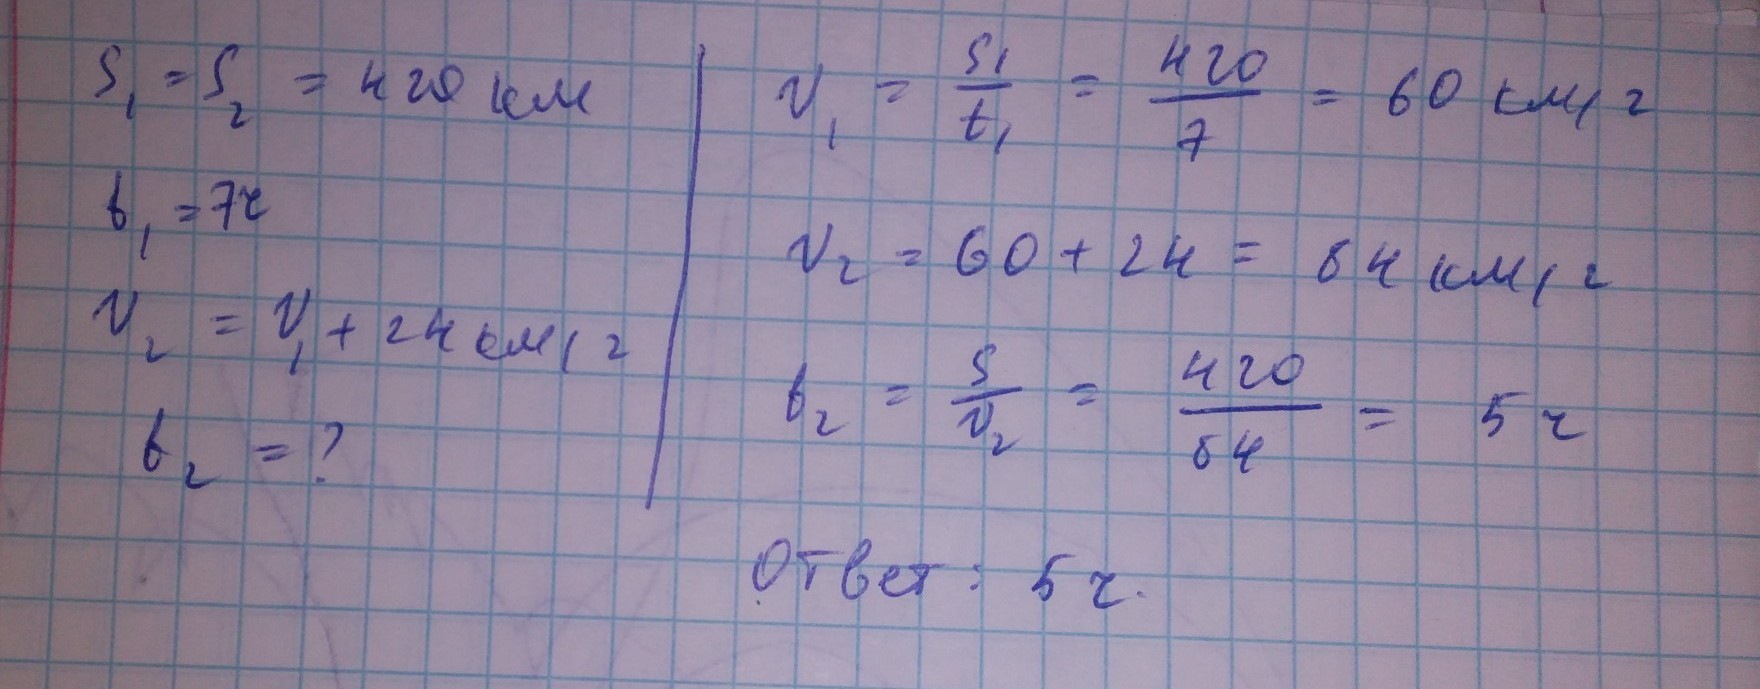 S₁ = S₂ = 420 км
t₁ = 7ч
V₂ = V₁ + 24 км/ч
t₂ = ?
V₁ = S₁/t₁ = 420/7 = 60 км/ч
V₂ = 60 + 24 = 84 км/ч
t₂ = S/V₂ = 420/84 = 5 ч
Ответ: 5 ч.